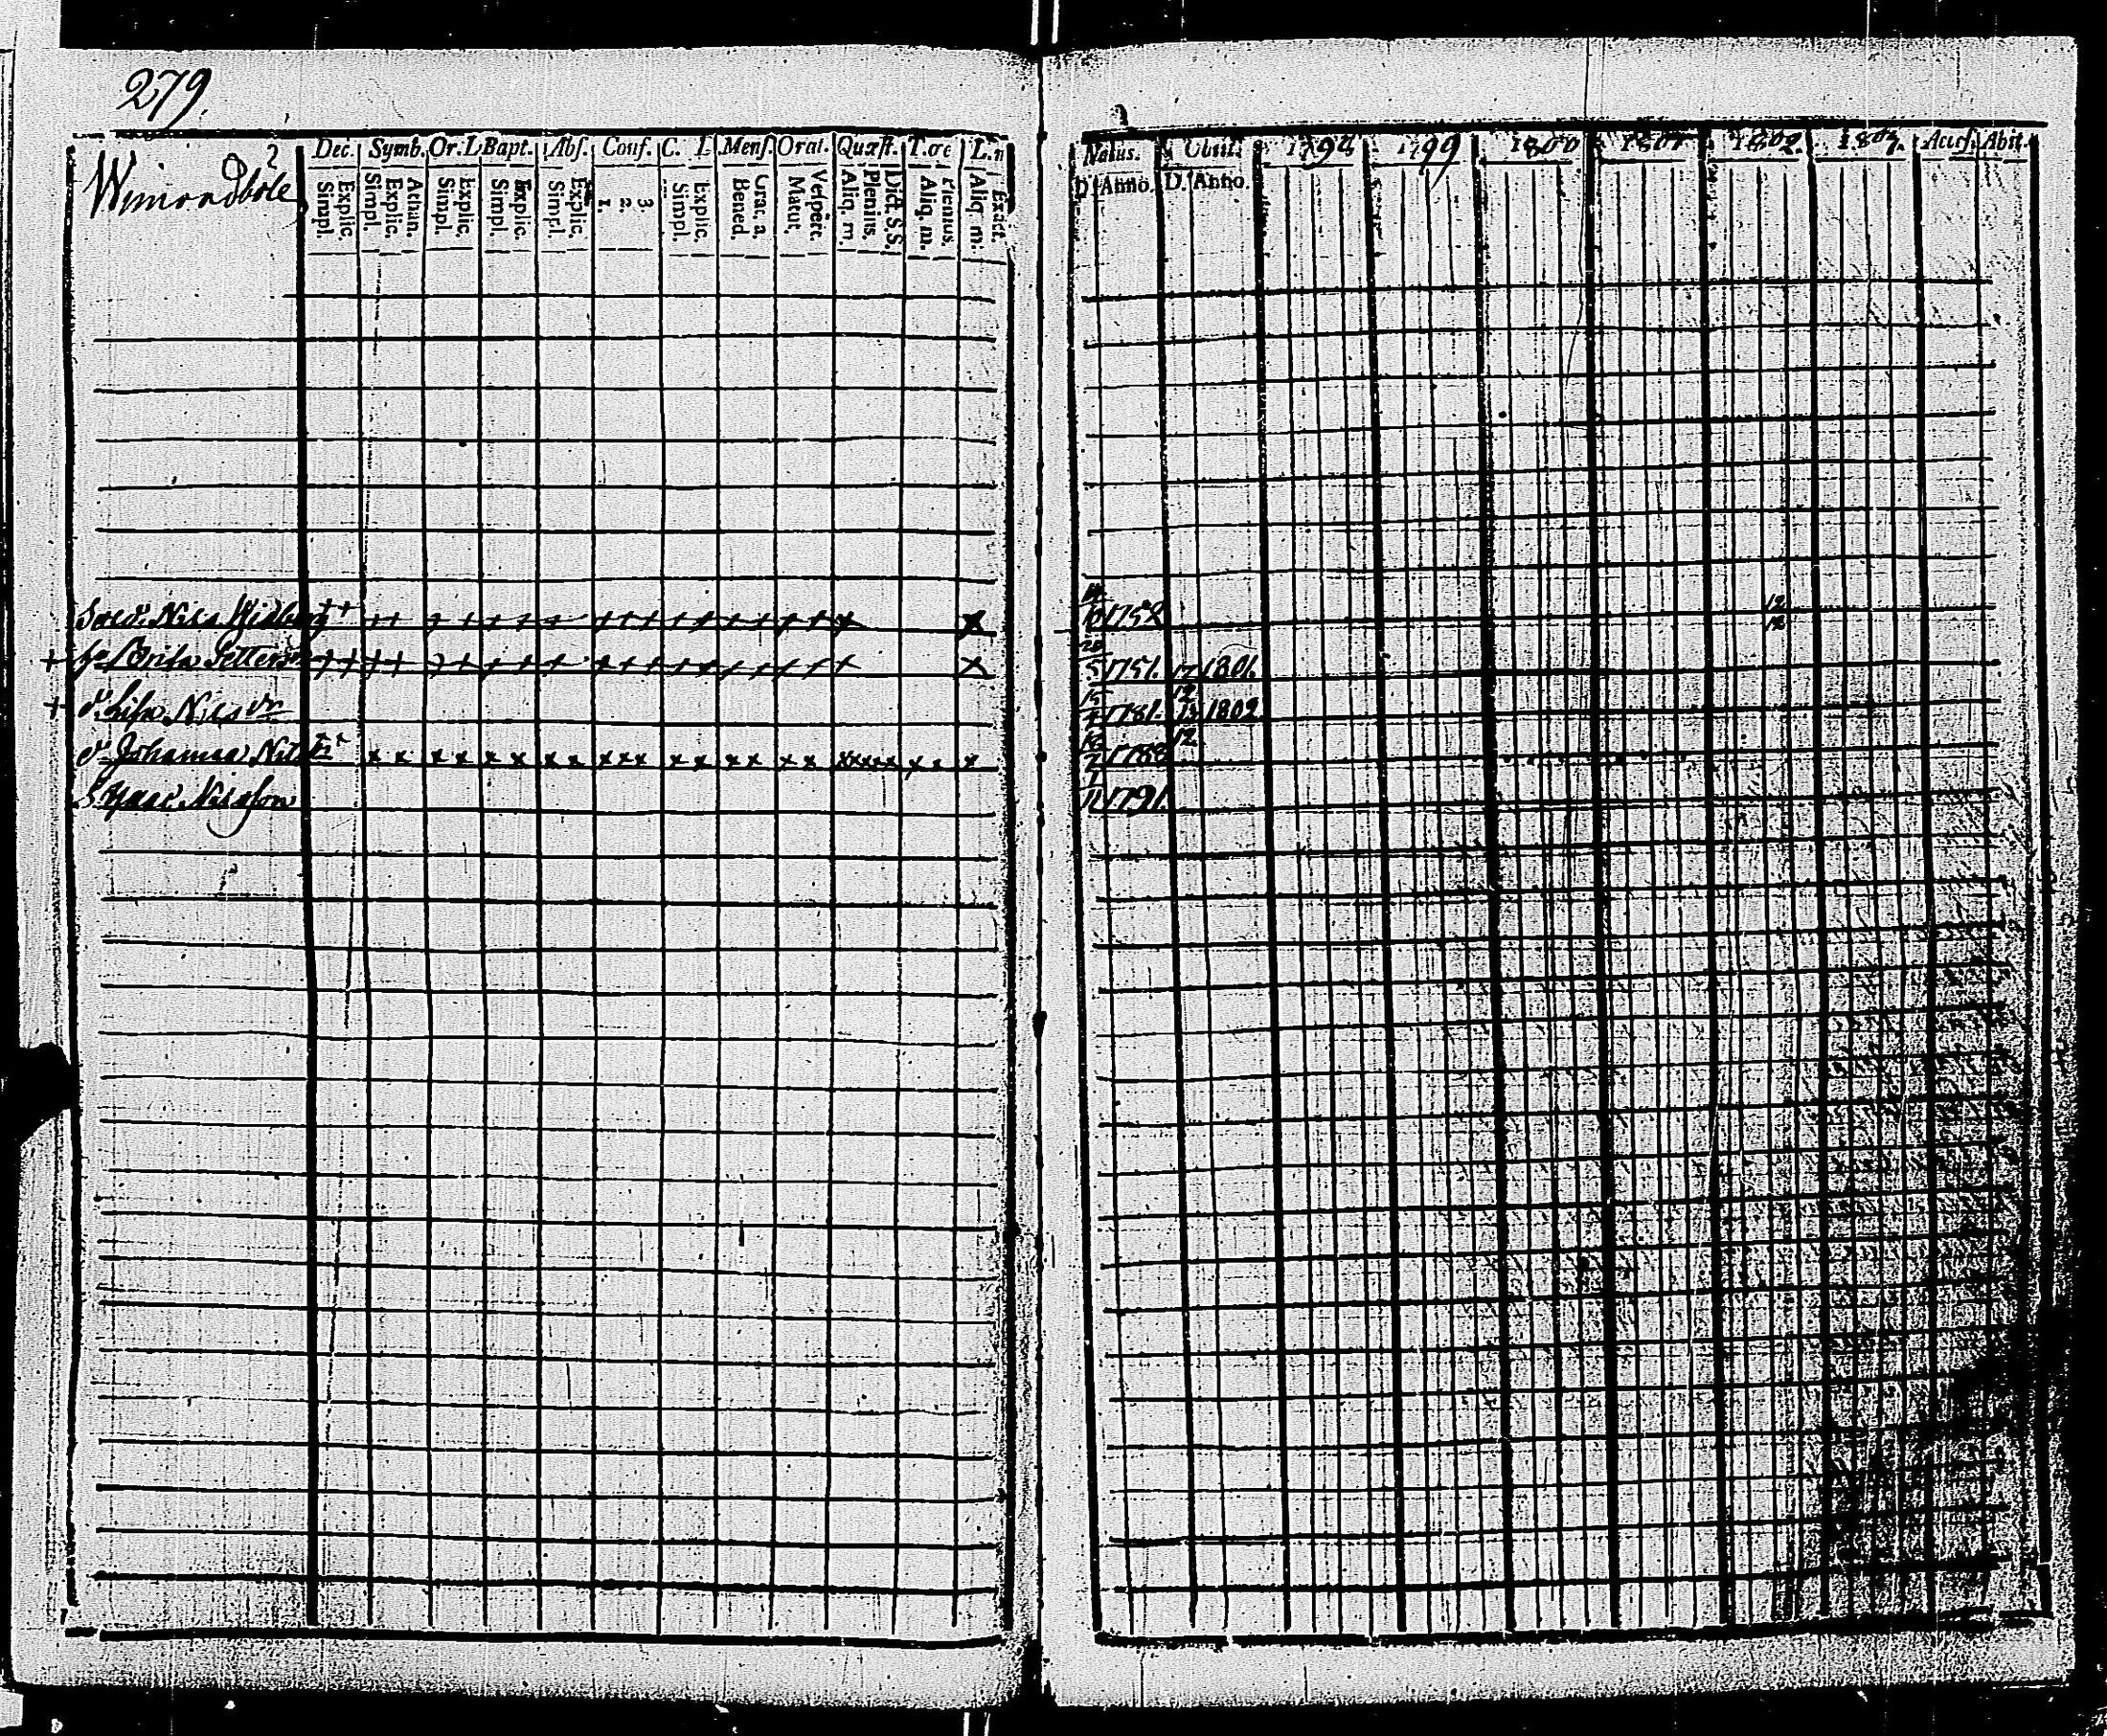 279.
Wimondböle
Dec. Symb. Or. L Bapt. Abs. Conf. C. L. Mens. Orat. Quæst. T. œc L. n
Explic. Simpl. Athan. Explic. Simpl. Explic. Simpl. Explic. Simpl. Explic. Simpl. 3. 2. 1. Explic. Simpl. Grac. a. Bened. Vespert. Matut. Dict S.S. Plenius. Aliq. m. Plenius. Aliq. m. Exact. Aliq m.
Natus. Obiit. 1798 1799 1800 1801 1802. 1803. Access. Abit.
D. Anno. D. Anno.
Nils Widberg ++ ++ ++ ++ ++ +++ ++ ++ ++ + x 10 1752 12 12
+ Brita Petters ++ ++ ++ ++ ++ +++ ++ ++ ++ + x 20 5 1751. 17 12 1801.
+ d. Lisa Nilsdr 15 1781. 13 12 1802
d. Johanna Nilsdr x x x x x x x x x x x x x x x x x xxxxx x x x 7 1788
S. Isaac Nilsson 1 11 1791.